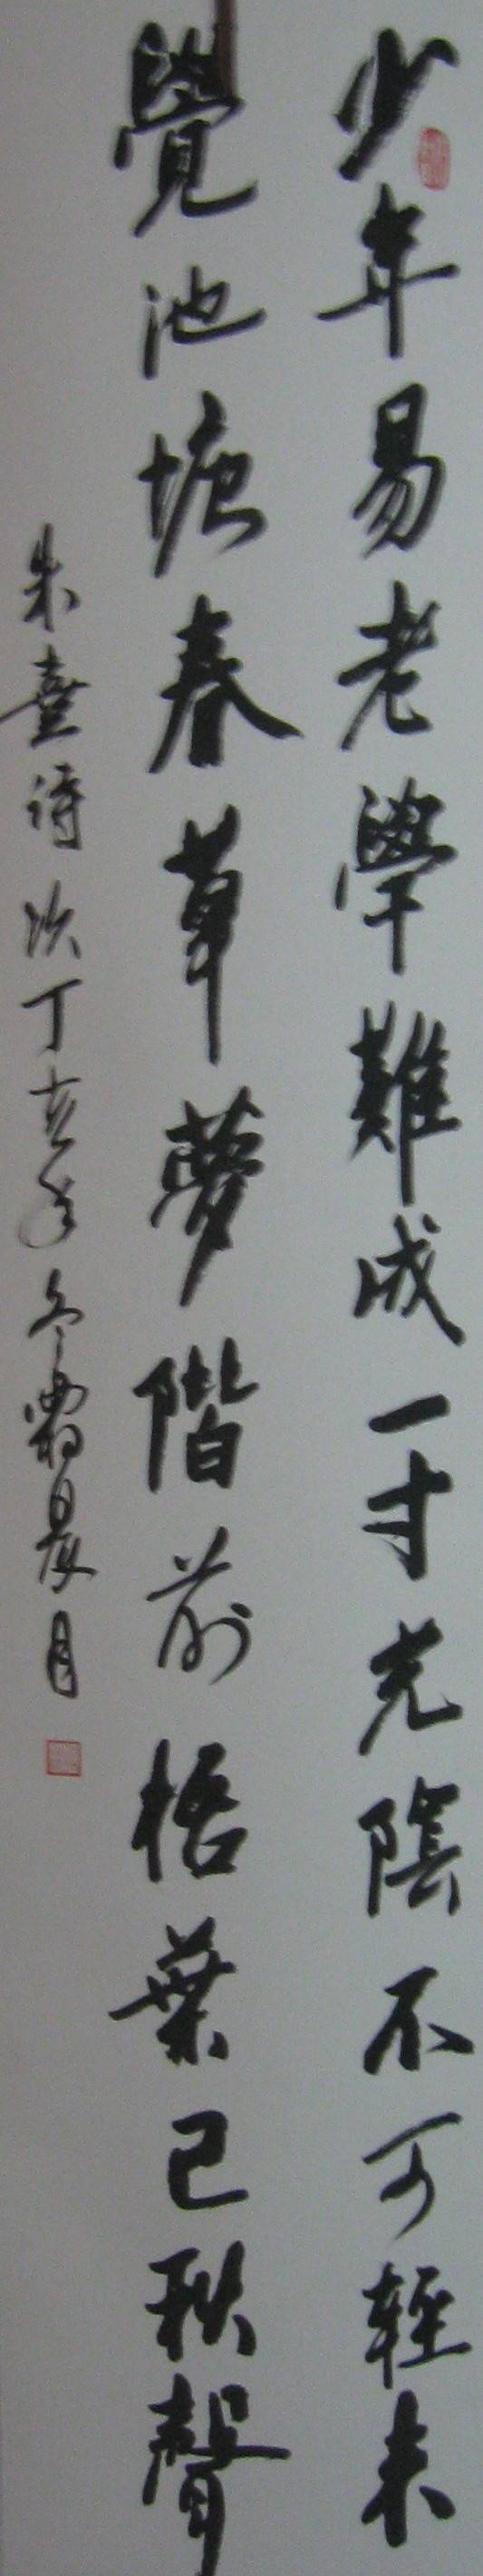 少年易老學難成一寸光陰不可輕未
覺池塘春草夢階前梧葉已秋聲
朱熹詩次丁亥年冬霜晨月